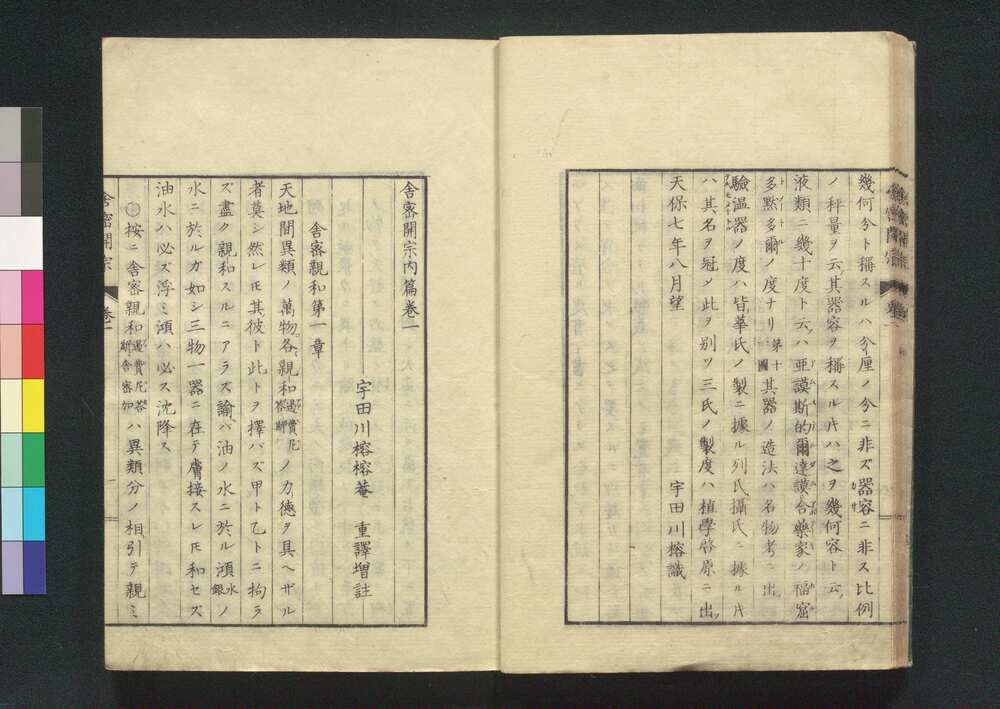 幾何分ト稱スルハ分厘ノ分ニ非ズ器容ニ非ス比例
ノ秤量ヲ云其器容ヲ稱スル片ハ之ヲ幾何容ト云
液類ニ幾十度ト云ハ亜謨斯的爾達謨合藥家ノ福窟
多黙多爾ノ度ナリ第十圖其器ノ造法ハ名物考ニ出
驗温器ノ度ハ皆華氏ノ製ニ據ル列氏攝氏ニ據ル片
ハ其名ヲ冠シ此ヲ別ツ三氏ノ製度ハ植學啓原ニ出
天保七年八月望
宇田川榕識
舎密開宗内篇巻一
宇田川榕榕菴 重譯増註
舎密親和第一章
天地間異類ノ萬物各親和ノ力徳ヲ具ヘザル
者莫シ然レ𪜈其彼ト此トヲ擇バズ甲ト乙トニ拘ラ
ズ盡ク親和スルニアラズ諭バ油ノ水ニ於ル澒水銀ノ
水ニ於ルガ如シ三物一器ニ在テ膚接スレ𪜈和セズ
油水ハ必ズ浮ミ澒ハ必ス沈降ス
按ニ舎密親和ハ異類分ノ相引テ親ミ
舎密開宗 巻一 一